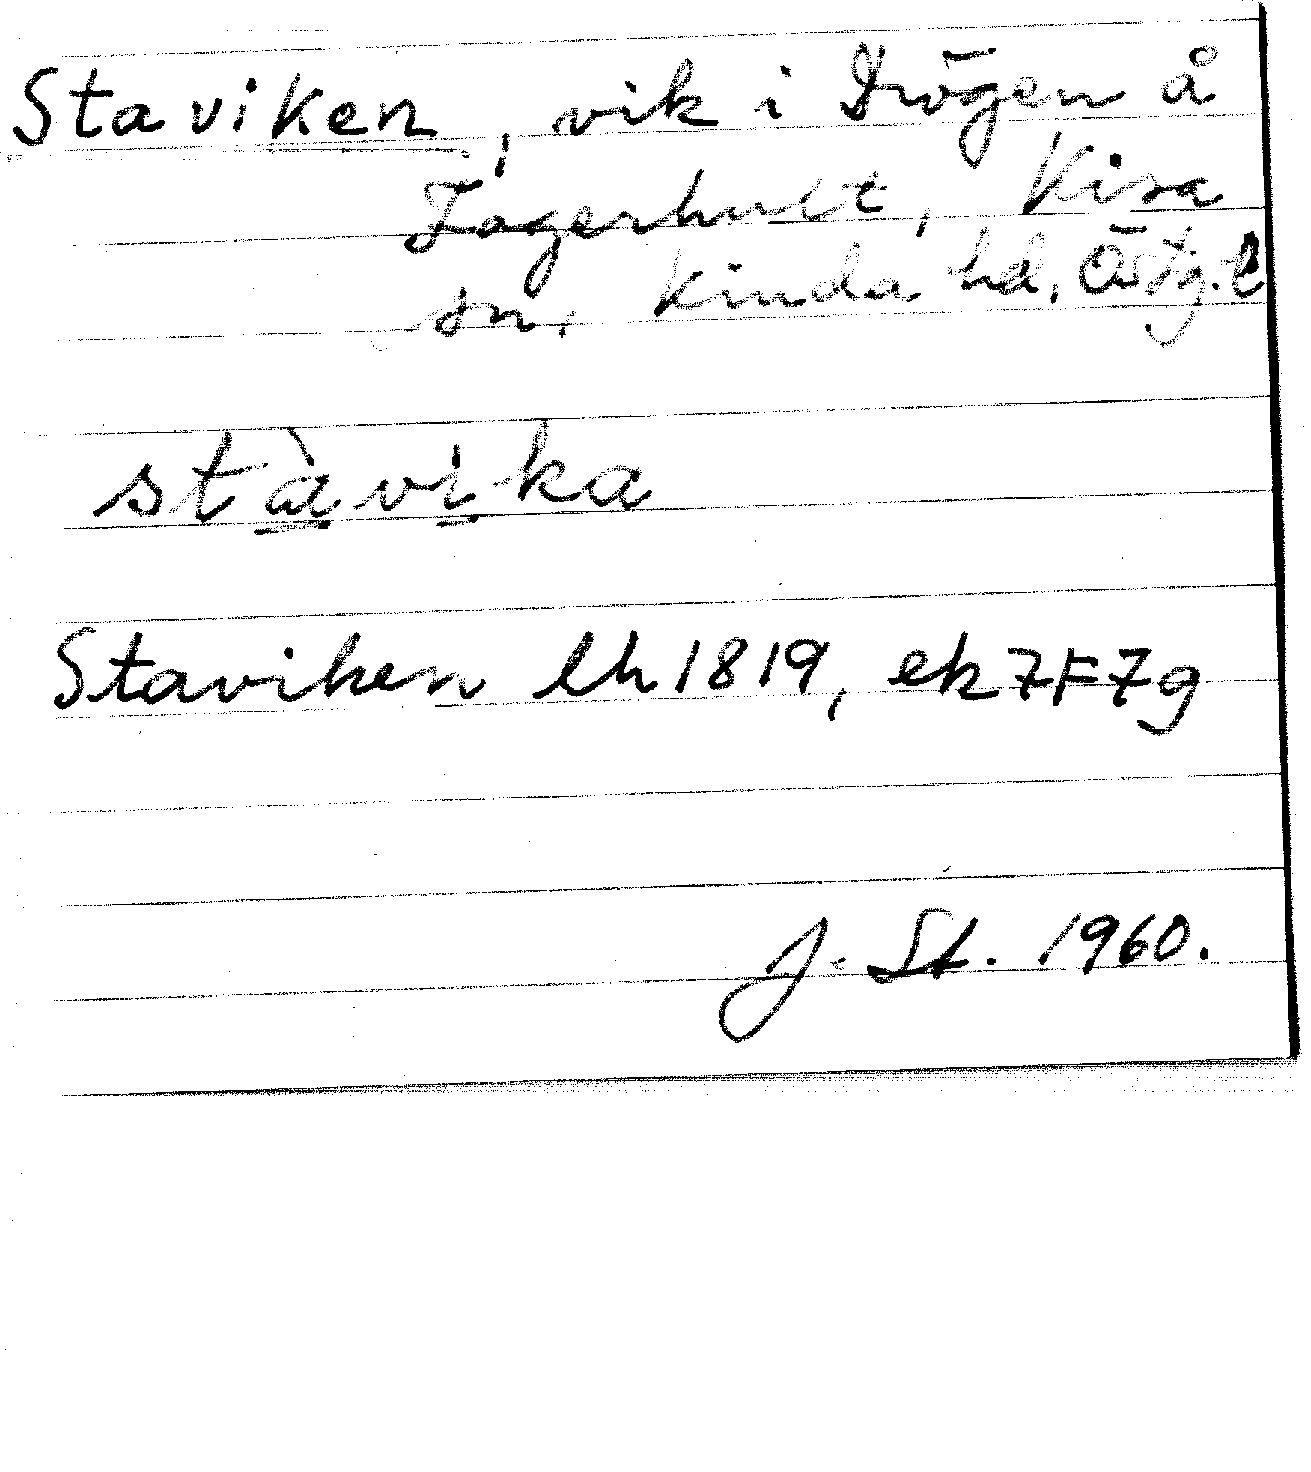 Staviken, vik i Drögen å
Fagerhult, Kisa
sn. Kinda hd, Östg.l
stàvika
Staviken lh 1819, ek 7F7g
J. St. 1960.